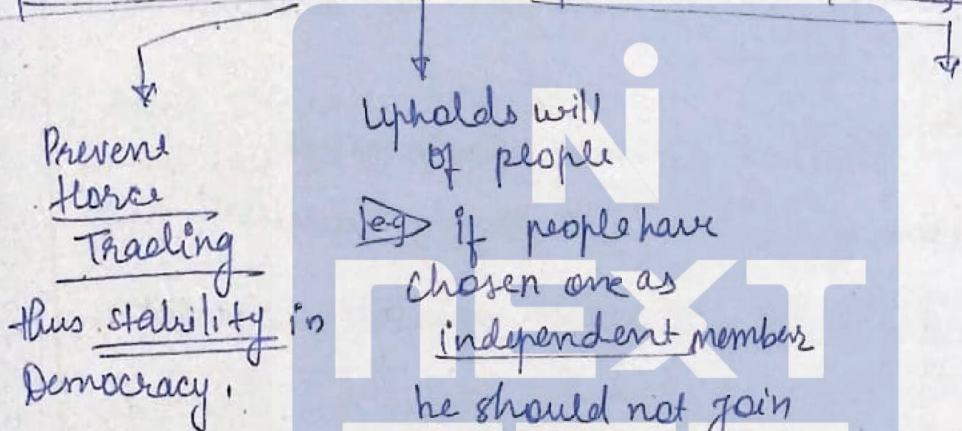 Prevent
Horce
Trading
thus stability in
Democracy.
Upholds will
of people
e.g if people have
chosen one as
independent member
he should not join
Ni
NEXT